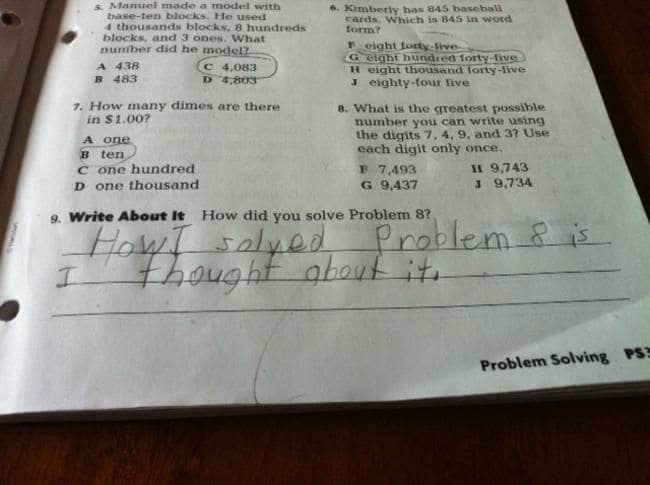 5. Manuel made a model with
base-ten blocks. He used
4 thousands blocks, 8 hundreds
blocks, and 3 ones. What
number did he model?
A 438
C 4,083
B 483
D 4,803
6. Kimberly has 845 baseball
cards. Which is 845 in word
form?
F eight forty-five
G eight hundred forty-five
H eight thousand forty-five
J eighty-four five
7. How many dimes are there
in $1.00?
A one
B ten
C one hundred
D one thousand
8. What is the greatest possible
number you can write using
the digits 7, 4, 9, and 3? Use
each digit only once.
F 7,493
H 9,743
G 9,437
J 9,734
9. Write About It How did you solve Problem 8?
How I solved Problem 8 is
I thought about it.
Problem Solving